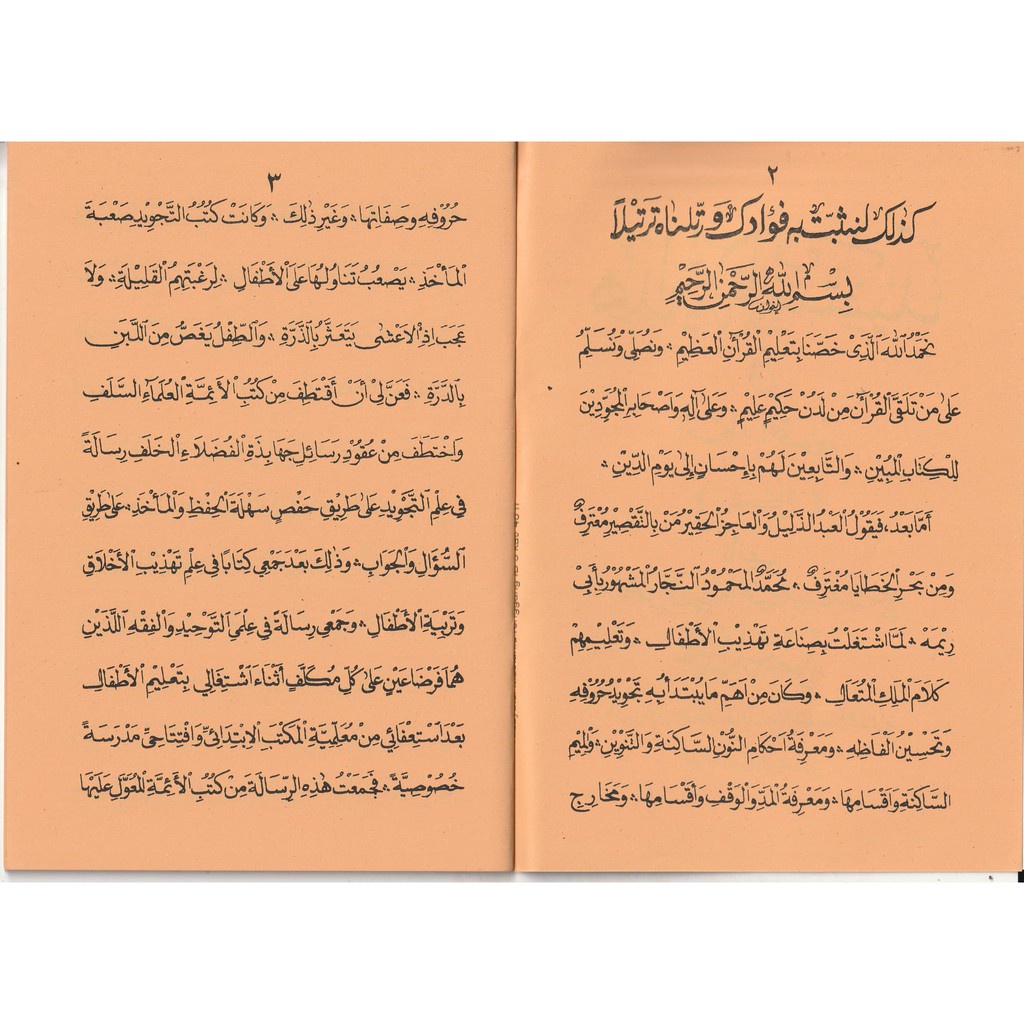 ٢
كذلك لنثبت به فؤادك ورتلناه ترتيلاً
بِسْمِ اللهِ الرَّحْمٰنِ الرَّحِيْمِ
نَحْمَدُ اللهَ الَّذِىْ خَصَّنَا بِتَعْلِيْمِ الْقُرْأٰنِ الْعَظِيْمِ ۞ وَنُصَلِّىْ وَنُسَلِّمُ
عَلٰى مَنْ تَلَقَّى الْقُرْأٰنَ مِنْ لَدُنْ حَكِيْمٍ عَلِيْمٍ ۞ وَعَلٰى آلِهِ وَاَصْحَابِهِ الْمُجَوِّدِيْنَ
لِلْكِتَابِ الْمُبِيْنِ ۞ وَالتَّابِعِيْنَ لَهُمْ بِاِحْسَانٍ اِلٰى يَوْمِ الدِّيْنِ ۞
اَمَّا بَعْدُ ۞ فَيَقُوْلُ الْعَبْدُ الذَّلِيْلُ وَالْعَاجِزُ الْحَقِيْرُ مَنْ بِالتَّقْصِيْرِ مُعْتَرِفٌ
وَمِنْ بَحْرِ الْخَطَايَا مُغْتَرِفٌ ۞ مُحَمَّدٌ الْمَحْمُوْدُ النَّجَّارُ الْمَشْهُوْرُ بِأَبِىْ
رِيْمَه ۞ لَمَّا اشْتَغَلْتُ بِصِنَاعَةِ تَهْذِيْبِ الْأَطْفَالِ ۞ وَتَعْلِيْمِهِمْ
كَلَامَ الْمَلِكِ الْمُتَعَالِ ۞ وَكَانَ مِنْ اَهَمِّ مَا يُبْتَدَأُ بِهِ تَجْوِيْدُ حُرُوْفِهِ
وَتَحْسِيْنُ اَلْفَاظِهِ ۞ وَمَعْرِفَةُ اَحْكَامِ النُّوْنِ السَّاكِنَةِ وَالتَّنْوِيْنِ ۞ وَالْمِيْمِ
السَّاكِنَةِ وَاَقْسَامِهَا ۞ وَمَعْرِفَةُ الْمَدِّ وَالْوَقْفِ وَاَقْسَامِهَا ۞ وَمَخَارِجِ
٣
حُرُوْفِهِ وَصِفَاتِهَا ۞ وَغَيْرِ ذٰلِكَ ۞ وَكَانَتْ كُتُبُ التَّجْوِيْدِ صَعْبَةَ
الْمَأْخَذِ ۞ يَصْعُبُ تَنَاوُلُهَا عَلَى الْأَطْفَالِ ۞ لِرَغْبَتِهِمُ الْقَلِيْلَةِ ۞ وَلَا
عَجَبَ اِذِ الْاَعْشٰى يَتَعَثَّرُ بِالذَّرَّةِ ۞ وَالطِّفْلُ يَغَصُّ مِنَ اللَّبَنِ
بِالدَّرَّةِ ۞ فَعَنَّ لِىْ أَنْ أَقْتَطِفَ مِنْ كُتُبِ الْأَئِمَّةِ الْعُلَمَاءِ السَّلَفِ
وَاَخْتَطِفَ مِنْ عُقُوْدِ رَسَائِلِ جَهَابِذَةِ الْفُضَلَاءِ الْخَلَفِ رِسَالَةً
فِى عِلْمِ التَّجْوِيْدِ عَلٰى طَرِيْقِ حَفْصٍ سَهْلَةَ الْحِفْظِ وَالْمَأْخَذِ ۞ عَلٰى طَرِيْقِ
السُّؤَالِ وَالْجَوَابِ ۞ وَذٰلِكَ بَعْدَ جَمْعِى كِتَابًا فِى عِلْمِ تَهْذِيْبِ الْأَخْلَاقِ
وَتَرْبِيَةِ الْأَطْفَالِ ۞ وَجَمْعِى رِسَالَةً فِى عِلْمَىِ التَّوْحِيْدِ وَالْفِقْهِ اللَّذَيْنِ
هُمَا فَرْضَا عَيْنٍ عَلٰى كُلِّ مُكَلَّفٍ أَثْنَاءَ اشْتِغَالِىْ بِتَعْلِيْمِ الْأَطْفَالِ
بَعْدَ اسْتِعْفَائِىْ مِنْ مُعَلِّمِيَّةِ الْمَكْتَبِ الْاِبْتِدَائِىِّ وَافْتِتَاحِىْ مَدْرَسَةً
خُصُوْصِيَّةً ۞ فَجَمَعْتُ هٰذِهِ الرِّسَالَةَ مِنْ كُتُبِ الْأَئِمَّةِ الْمُعَوَّلِ عَلَيْهَا